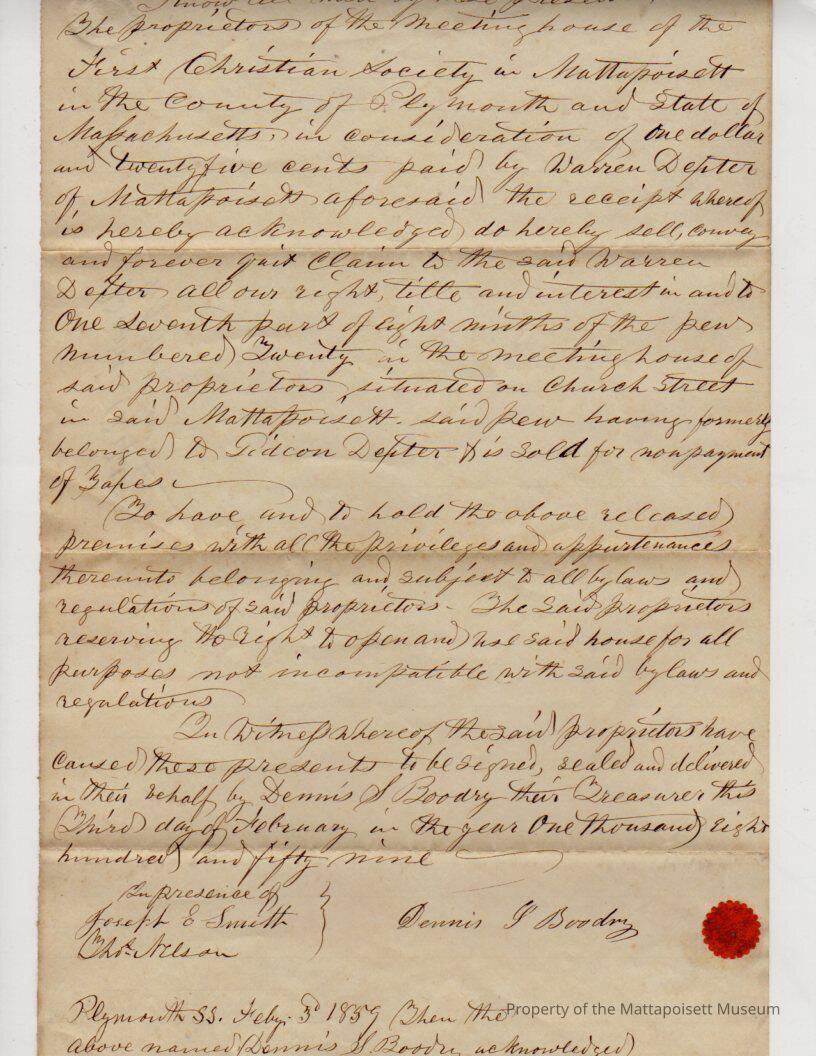 Know all men by these presents
The proprietors of the meeting house of the
First Christian Society in Mattapoisett
in the County of Plymouth and State of
Massachusetts, in consideration of one dollar
and twentyfive cents paid by Warren Dexter
of Mattapoisett aforesaid the receipt whereof
is hereby acknowledged do hereby sell, convey
and forever quit Claim to the said Warren
Dexter all our right, title and interest in and to
One Seventh part of eight ninths of the pew
numbered Twenty in the meeting house of
said proprietors, situated on Church Street
in said Mattapoisett. said pew having formerly
belonged to Gideon Dexter & is sold for nonpayment
of Taxes.
To have and to hold the above released
premises with all the privileges and appurtenances
thereunto belonging and subject to all bylaws and
regulations of said proprietors - The Said proprietors
reserving the right to open and use said house for all
purposes not incompatible with said bylaws and
regulations
In Witness whereof the said proprietors have
caused these presents to be signed, sealed and delivered
in their behalf by Dennis S Boodry their Treasurer this
Third day of February in the year One thousand Eight
hundred and fifty nine
In presence of
Joseph E Smith
Dennis S Boodry
Thos. Nelson
Plymouth SS. Feby. 3d 1859 Then the
Property of the Mattapoisett Museum
above named Dennis S. Boodry acknowledged